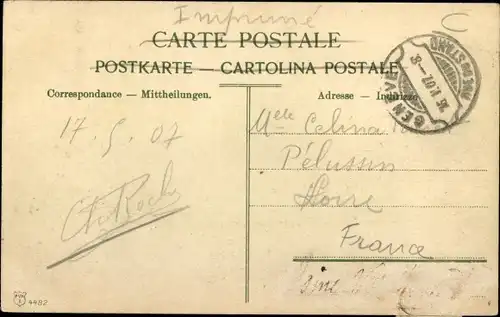 Imprimé
C
CARTE POSTALE
POSTKARTE — CARTOLINA POSTALE
Correspondance — Mittheilungen.
Adresse — Indirizzo
GENÈVE
17. 5. 07
Melle Celina
Pélussin
Loire
France
Ch. Roch
4482